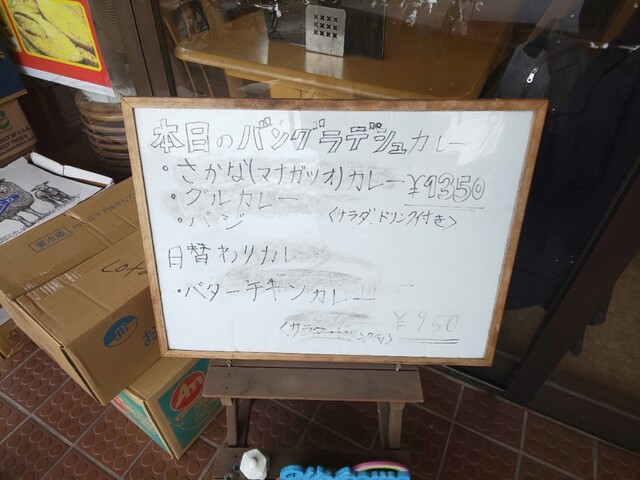 本日のバングラデシュカレー
・さかな(マナガツオ)カレー ¥1350
・ダルカレー
・バジ <サラダ.ドリンク付き>
日替わりカレー
・バターチキンカレー
<サラダ・ドリンク付> ¥950